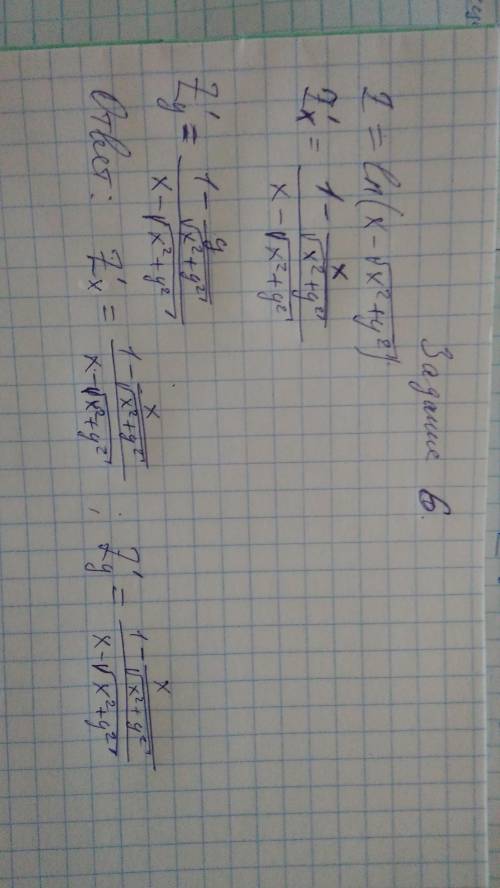 Задание 6.
Z = ln(x - √(x²+y²)).
Z'ₓ = (1 - x/√(x²+y²))/(x - √(x²+y²))
Z'ᵧ = (1 - y/√(x²+y²))/(x - √(x²+y²))
Ответ: Z'ₓ = (1 - x/√(x²+y²))/(x - √(x²+y²)) , Z'ᵧ = (1 - x/√(x²+y²))/(x - √(x²+y²))